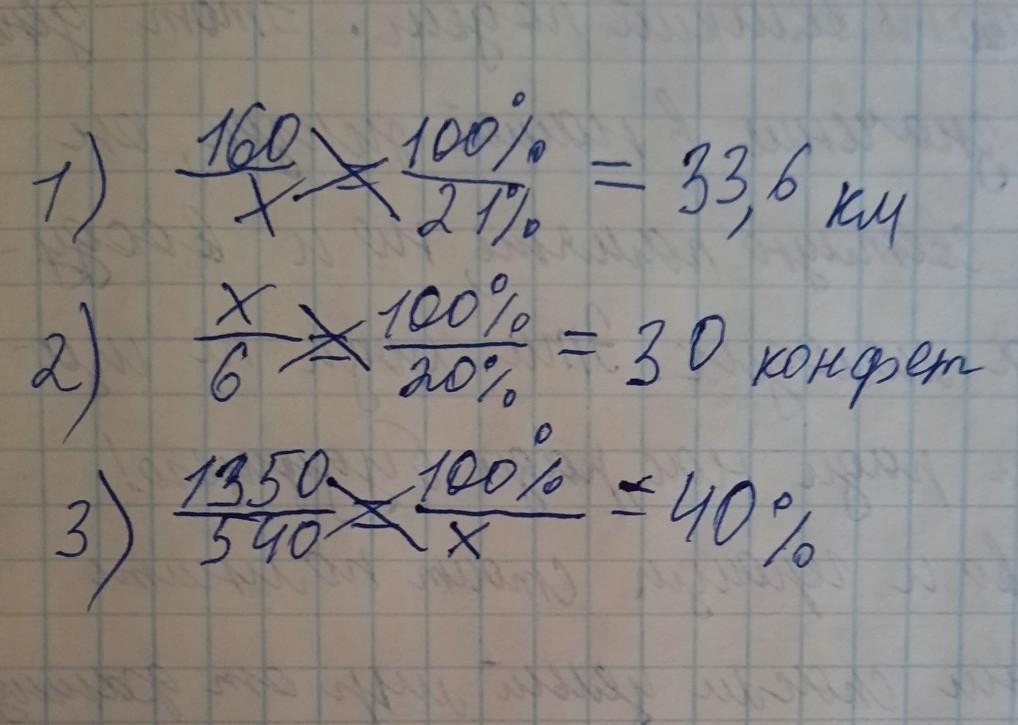 1) 160/x = 100%/21% = 33,6 км
2) x/6 = 100%/20% = 30 конфет
3) 1350/540 = 100%/x = 40%